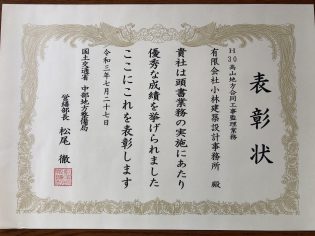 表彰状
H30高山地方合同工事監理業務
有限会社 小林建築設計事務所 殿
貴社は頭書業務の実施にあたり
優秀な成績を挙げられました
ここにこれを表彰します
令和三年七月二十七日
国土交通省 中部地方整備局
営繕部長 松尾 徹